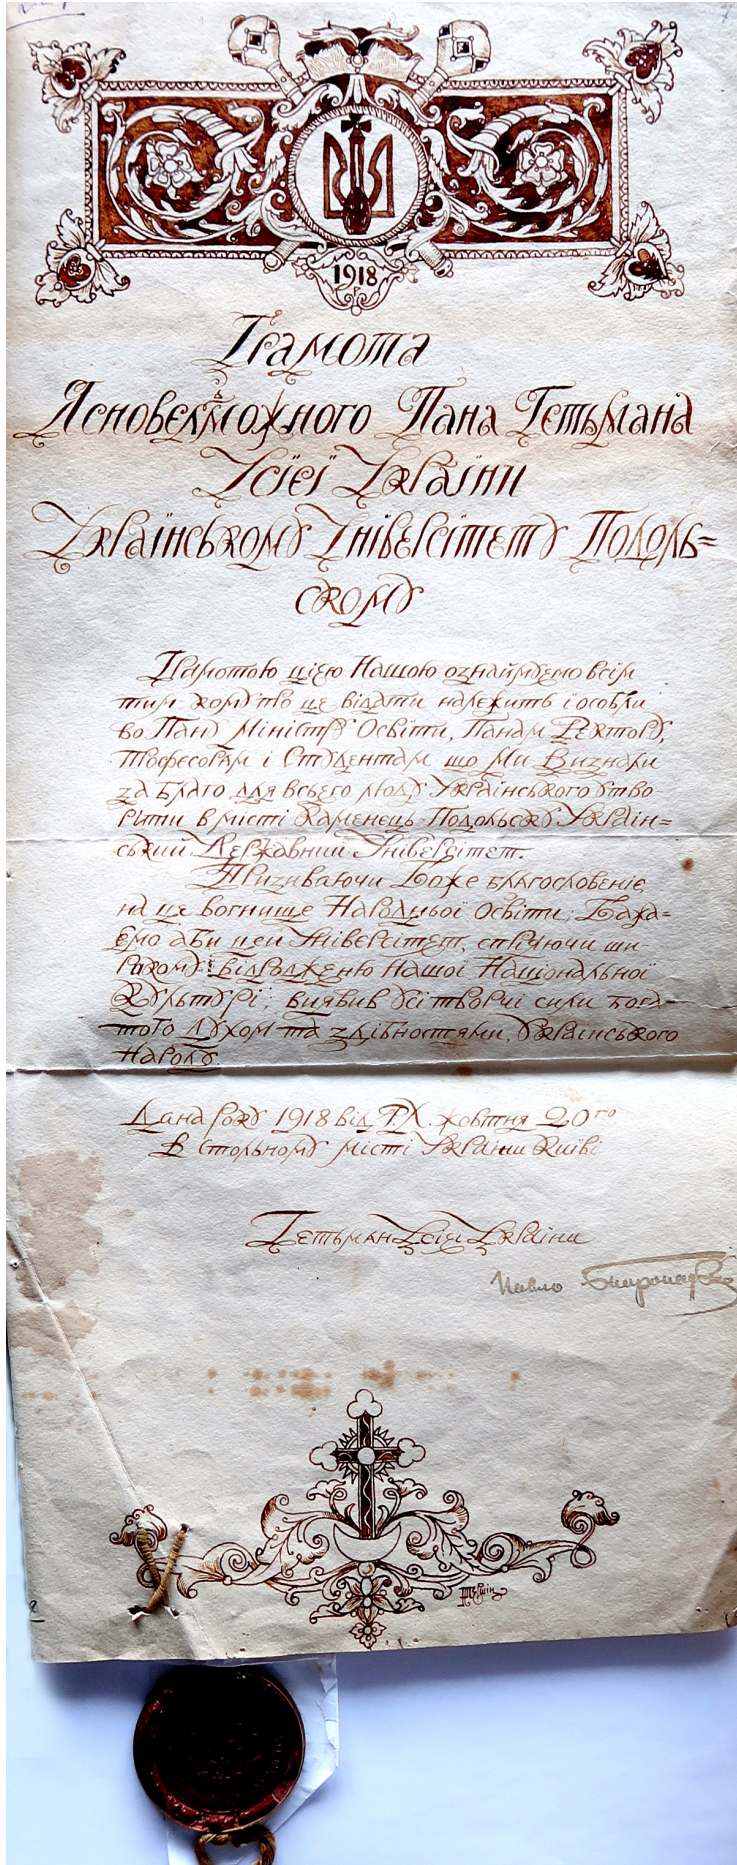 1918
Грамота
Ясновельможного Пана Гетьмана
Усієї Украіни
Украінському Універсітету Подоль=
скому
Грамотою цією Нашою ознаймуемо всім
тим кому про це відати належить і особли
во Пану Міністру Освіти, Панам Ректору,
Професорам і Студентам що Ми Визнали
за Благо для всього люду Украінського ство-
рити в місті Каменець-Подольску Украін=
ський Державний Універсітет.
Призиваючи Боже благословеніє
на це вогнище Народньоі Освіти, Бажа=
ємо аби цей Універсітет, служачи ши-
рокому відродженю Нашоі Національноі
Культурі, виявив усі творчі сили бога-
того духом та здібностями, украінського
Народу
Дана року 1918 від Р.Х. жовтня 20го
В Стольному місті Украіни Киіві
Гетьман Усієї Украіни
Павло Скоропадський